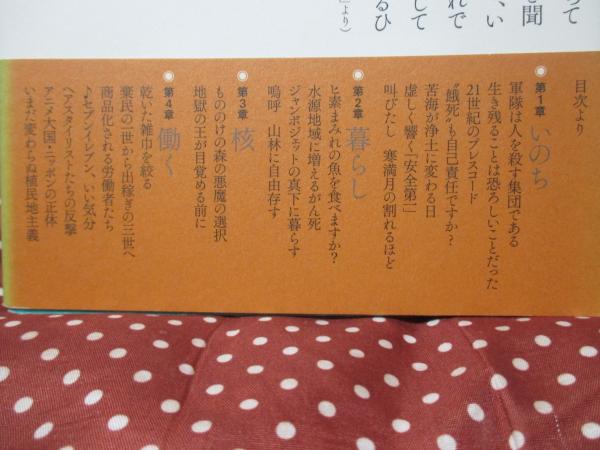 って
と聞
、い
れで
して
るひ
』より)
目次より
第1章 いのち
軍隊は人を殺す集団である
生き残ることは恐ろしいことだった
21世紀のプレスコード
“餓死”も自己責任ですか?
苦海が浄土に変わる日
虚しく響く「安全第一」
叫びたし 寒満月の割れるほど
第2章 暮らし
ヒ素まみれの魚を食べますか?
水源地域に増えるがん死
ジャンボジェットの真下に暮らす
嗚呼 山林に自由存す
第3章 核
もののけの森の悪魔の選択
地獄の王が目覚める前に
第4章 働く
乾いた雑巾を絞る
棄民の一世から出稼ぎの三世へ
商品化される労働者たち
♪セブンイレブン、いい気分
ヘアスタイリストたちの反撃
アニメ大国・ニッポンの正体
いまだ変わらぬ植民地主義